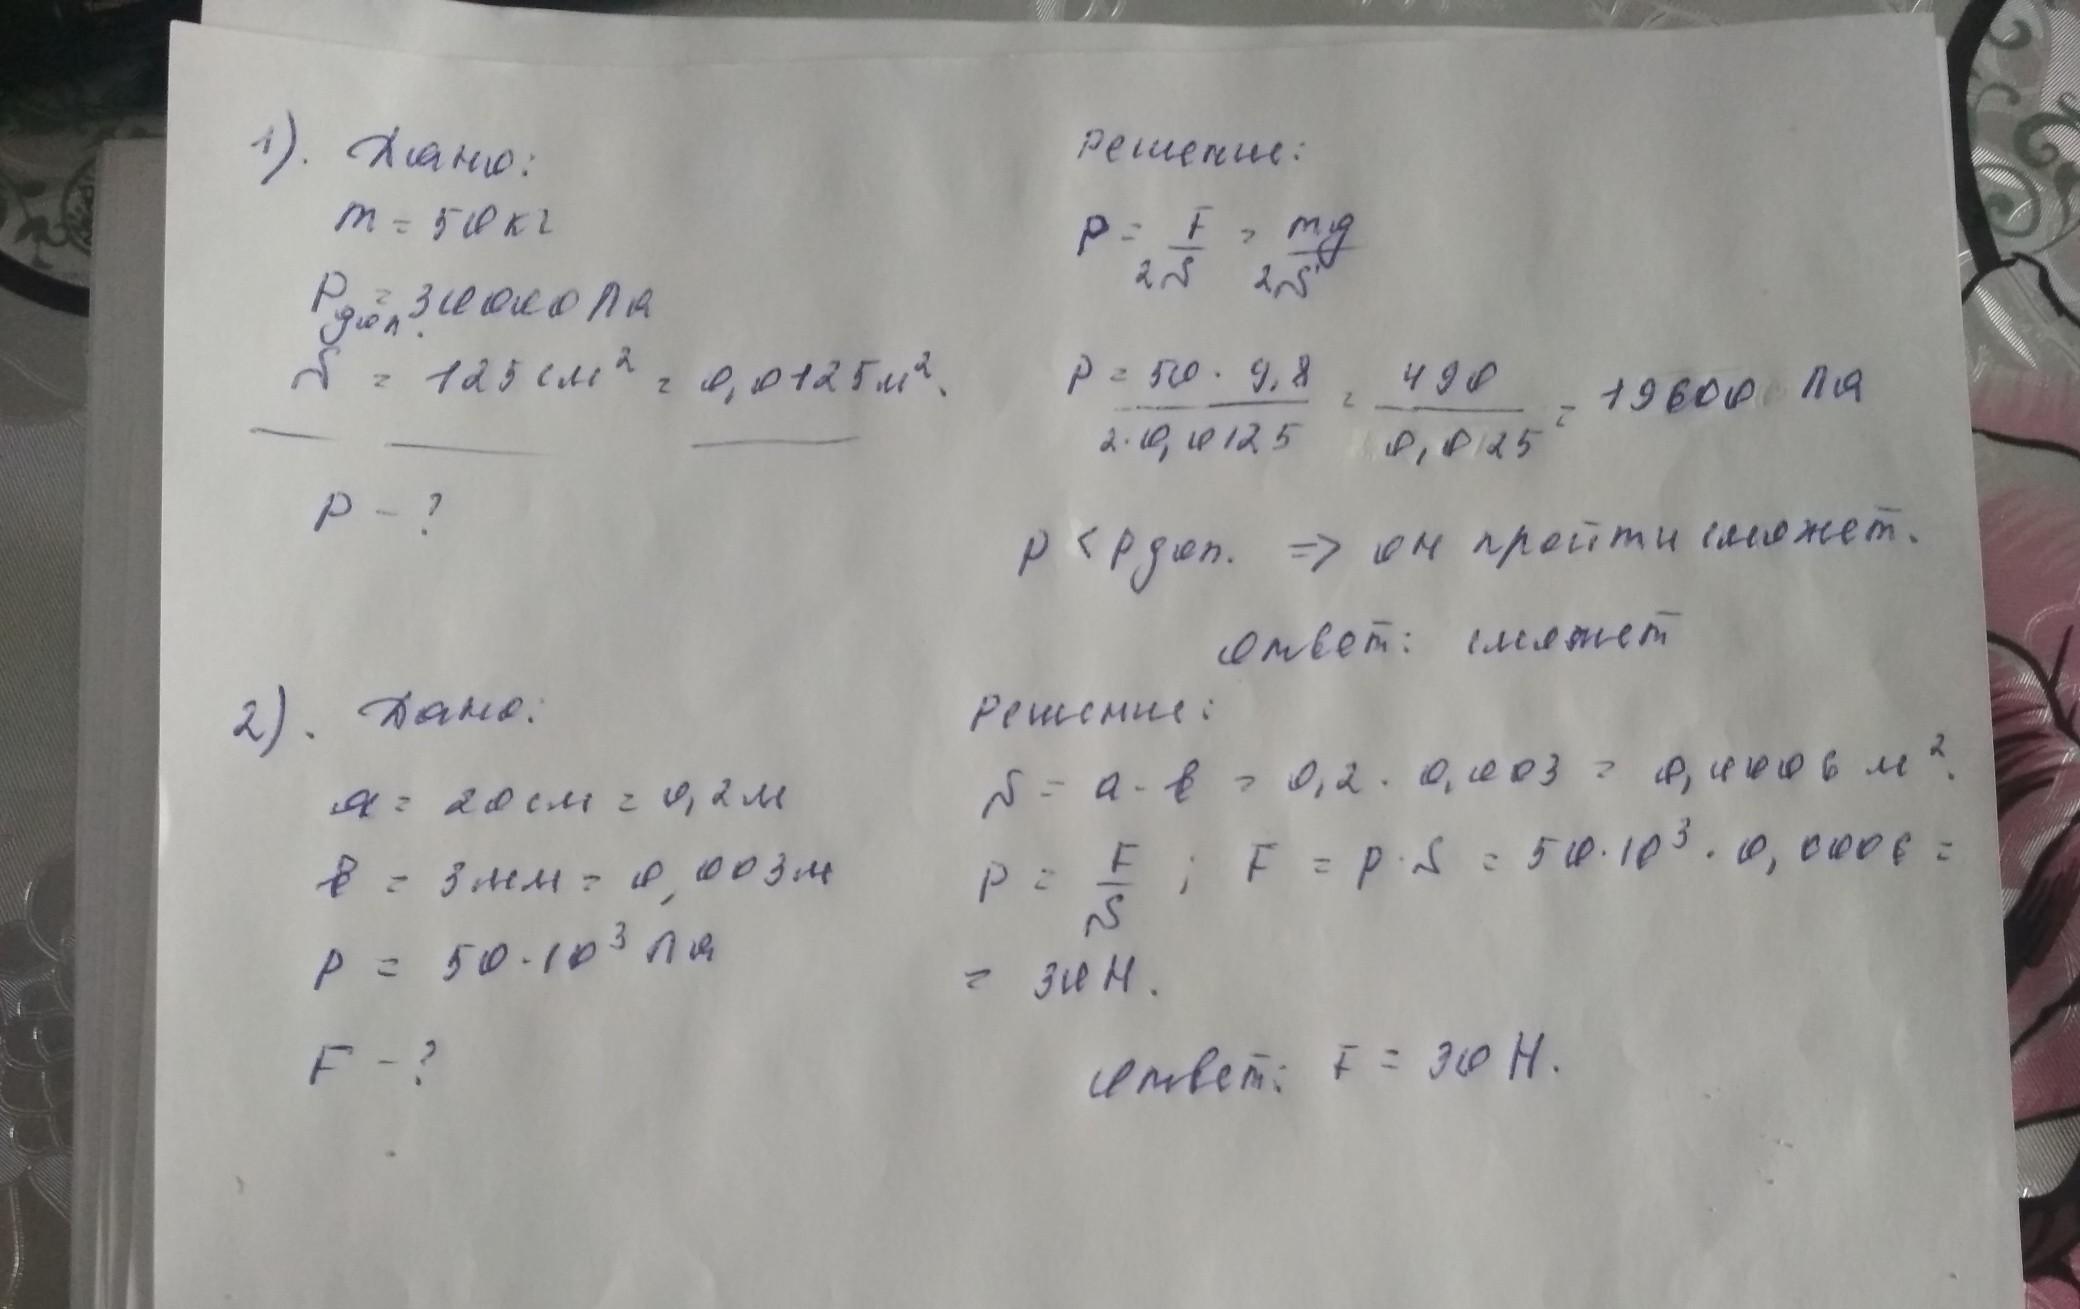 1). Дано:
m = 50 кг
Pдоп. = 30000 Па
S = 125 см² = 0,0125 м².
P - ?
Решение:
P = F/2S = mg/2S
P = 50 · 9,8 / 2·0,0125 = 490 / 0,025 = 19600 Па
P < Pдоп. => он пройти сможет.
Ответ: сможет
2). Дано:
a = 20 см = 0,2 м
b = 3 мм = 0,003 м
P = 50·10³ Па
F - ?
Решение:
S = a · b = 0,2 · 0,003 = 0,0006 м².
P = F/S ; F = P·S = 50·10³ · 0,0006 =
= 30 Н.
Ответ: F = 30 Н.